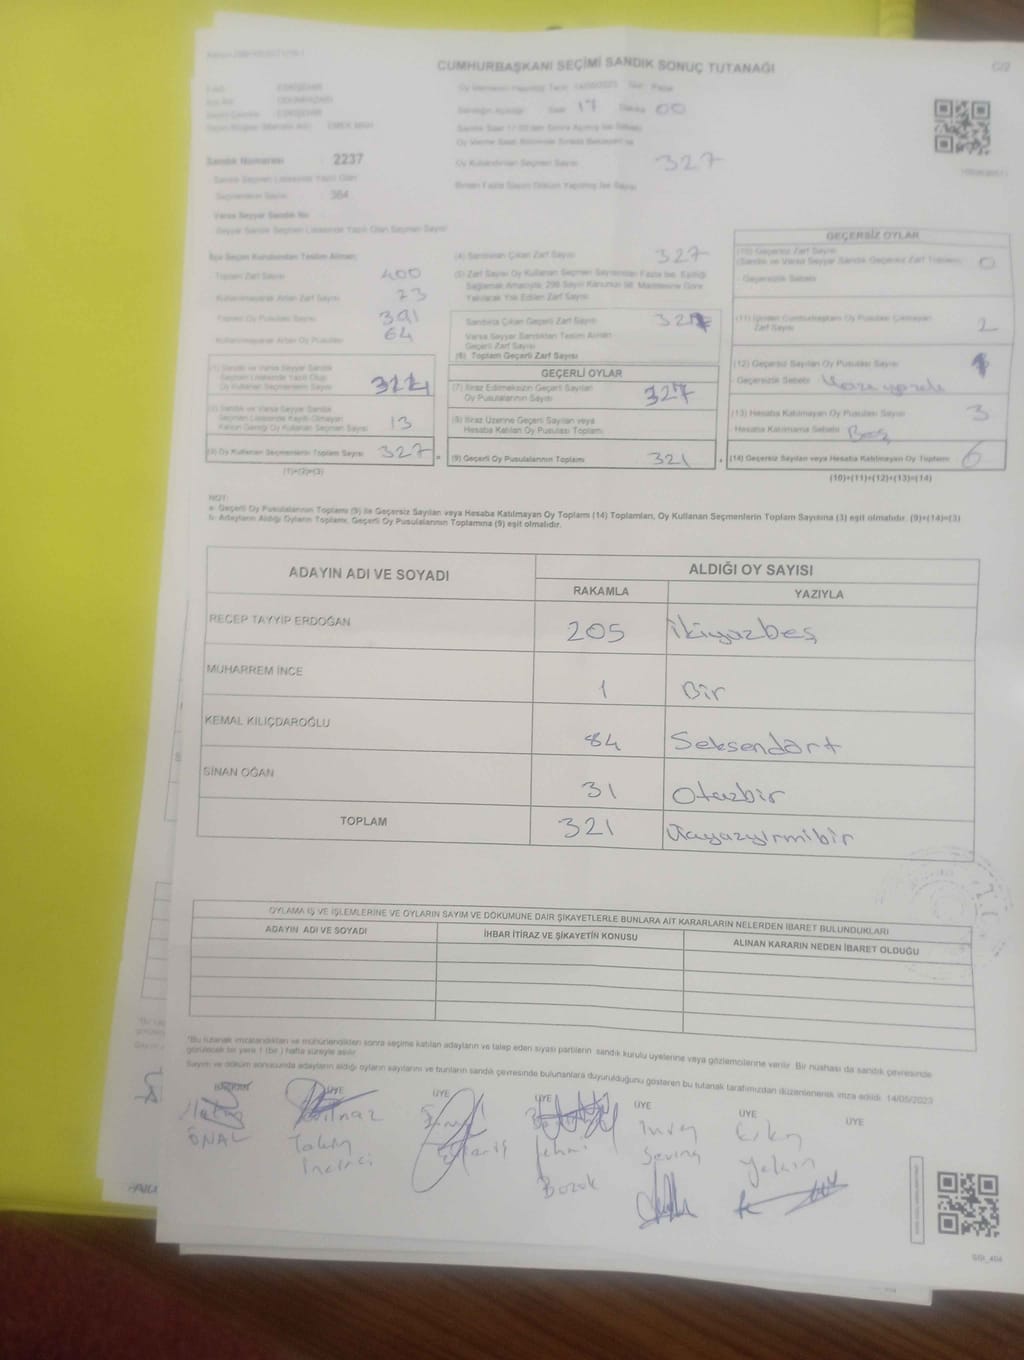 CUMHURBAŞKANI SEÇİMİ SANDIK SONUÇ TUTANAĞI
C/2
Oy Vermenin Yapıldığı Tarih: 14/05/2023 Gün: Pazar
Sandığın Açıldığı Saat 17 Dakika 00
Sandık Numarası 2237
Oy Kullandırılan Seçmen Sayısı 327
Sandık Seçmen Listesinde Yazılı Olan
Seçmenlerin Sayısı 384
Varsa Seyyar Sandık No
Seyyar Sandık Seçmen Listesinde Yazılı Olan Seçmen Sayısı
İlçe Seçim Kurulundan Teslim Alınan;
Toplam Zarf Sayısı 400
Kullanılmayarak Artan Zarf Sayısı 73
Toplam Oy Pusulası Sayısı 391
Kullanılmayarak Artan Oy Pusulası 64
(1) Sandık ve Varsa Seyyar Sandık
Seçmen Listesinde Yazılı Olup
Oy Kullanan Seçmenlerin Sayısı
(2) Sandık ve Varsa Seyyar Sandık
Seçmen Listesinde Kayıtlı Olmayan
Kanun Gereği Oy Kullanan Seçmen Sayısı 13
(3) Oy Kullanan Seçmenlerin Toplam Sayısı 327
(1)+(2)=(3)
(4) Sandıktan Çıkan Zarf Sayısı 327
(5) Zarf Sayısı Oy Kullanan Seçmen Sayısından Fazla İse, Eşitliği
Sağlamak Amacıyla; 298 Sayılı Kanunun 98. Maddesine Göre
Yakılarak Yok Edilen Zarf Sayısı
Sandıkta Çıkan Geçerli Zarf Sayısı
Varsa Seyyar Sandıktan Teslim Alınan
Geçerli Zarf Sayısı
(6) Toplam Geçerli Zarf Sayısı
GEÇERLİ OYLAR
(7) İtiraz Edilmeksizin Geçerli Sayılan
Oy Pusulalarının Sayısı
(8) İtiraz Üzerine Geçerli Sayılan veya
Hesaba Katılan Oy Pusulası Toplamı
(9) Geçerli Oy Pusulalarının Toplamı 321
GEÇERSİZ OYLAR
(10) Geçersiz Zarf Sayısı
(Sandık ve Varsa Seyyar Sandık Geçersiz Zarf Toplamı) 0
Geçersizlik Sebebi
(11) İçinden Cumhurbaşkanı Oy Pusulası Çıkmayan
Zarf Sayısı 2
(12) Geçersiz Sayılan Oy Pusulası Sayısı 1
Geçersizlik Sebebi
(13) Hesaba Katılmayan Oy Pusulası Sayısı 3
Hesaba Katılmama Sebebi Boş
(14) Geçersiz Sayılan veya Hesaba Katılmayan Oy Toplamı 6
(10)+(11)+(12)+(13)=(14)
NOT:
a- Geçerli Oy Pusulalarının Toplamı (9) ile Geçersiz Sayılan veya Hesaba Katılmayan Oy Toplamı (14) Toplamları, Oy Kullanan Seçmenlerin Toplam Sayısına (3) eşit olmalıdır. (9)+(14)=(3)
b- Adayların Aldığı Oyların Toplamı, Geçerli Oy Pusulalarının Toplamına (9) eşit olmalıdır.
ADAYIN ADI VE SOYADI
ALDIĞI OY SAYISI
RAKAMLA
YAZIYLA
RECEP TAYYİP ERDOĞAN 205 ikiyüzbeş
MUHARREM İNCE 1 Bir
KEMAL KILIÇDAROĞLU 84 Seksendört
SİNAN OĞAN 31 Otuzbir
TOPLAM 321 Üçyüzyirmibir
OYLAMA İŞ VE İŞLEMLERİNE VE OYLARIN SAYIM VE DÖKÜMÜNE DAİR ŞİKAYETLERLE BUNLARA AİT KARARLARIN NELERDEN İBARET BULUNDUKLARI
ADAYIN ADI VE SOYADI
İHBAR İTİRAZ VE ŞİKAYETİN KONUSU
ALINAN KARARIN NEDEN İBARET OLDUĞU
*Bu tutanak imzalandıktan ve mühürlendikten sonra seçime katılan adayların ve talep eden siyasi partilerin sandık kurulu üyelerine veya gözlemcilerine verilir. Bir nüshası da sandık çevresinde
görülecek bir yere 1 (bir) hafta süreyle asılır.
Sayım ve döküm sonucunda adayların aldığı oyların sayılarını ve bunların sandık çevresinde bulunanlara duyurulduğunu gösteren bu tutanak tarafımızdan düzenlenerek imza edildi. 14/05/2023
BAŞKAN ÜYE ÜYE ÜYE ÜYE ÜYE ÜYE
ÖNAL
Bozok
Yalçın